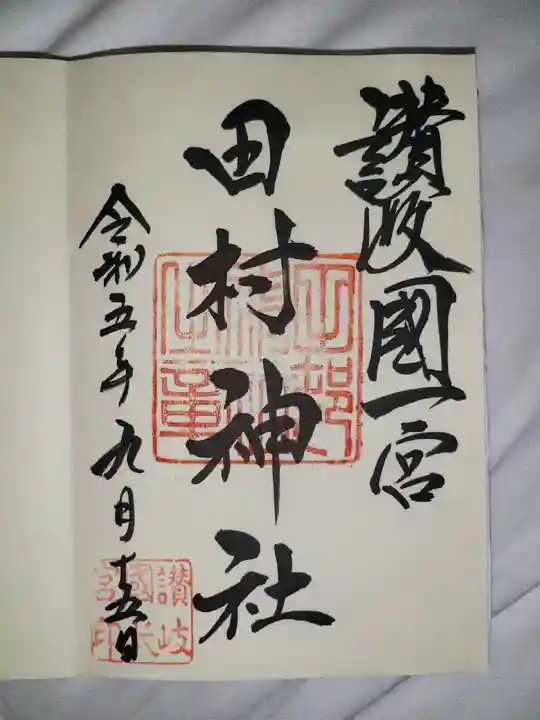 讃岐國一宮
田村神社
令和五年九月十五日
讃岐
國一
宮印